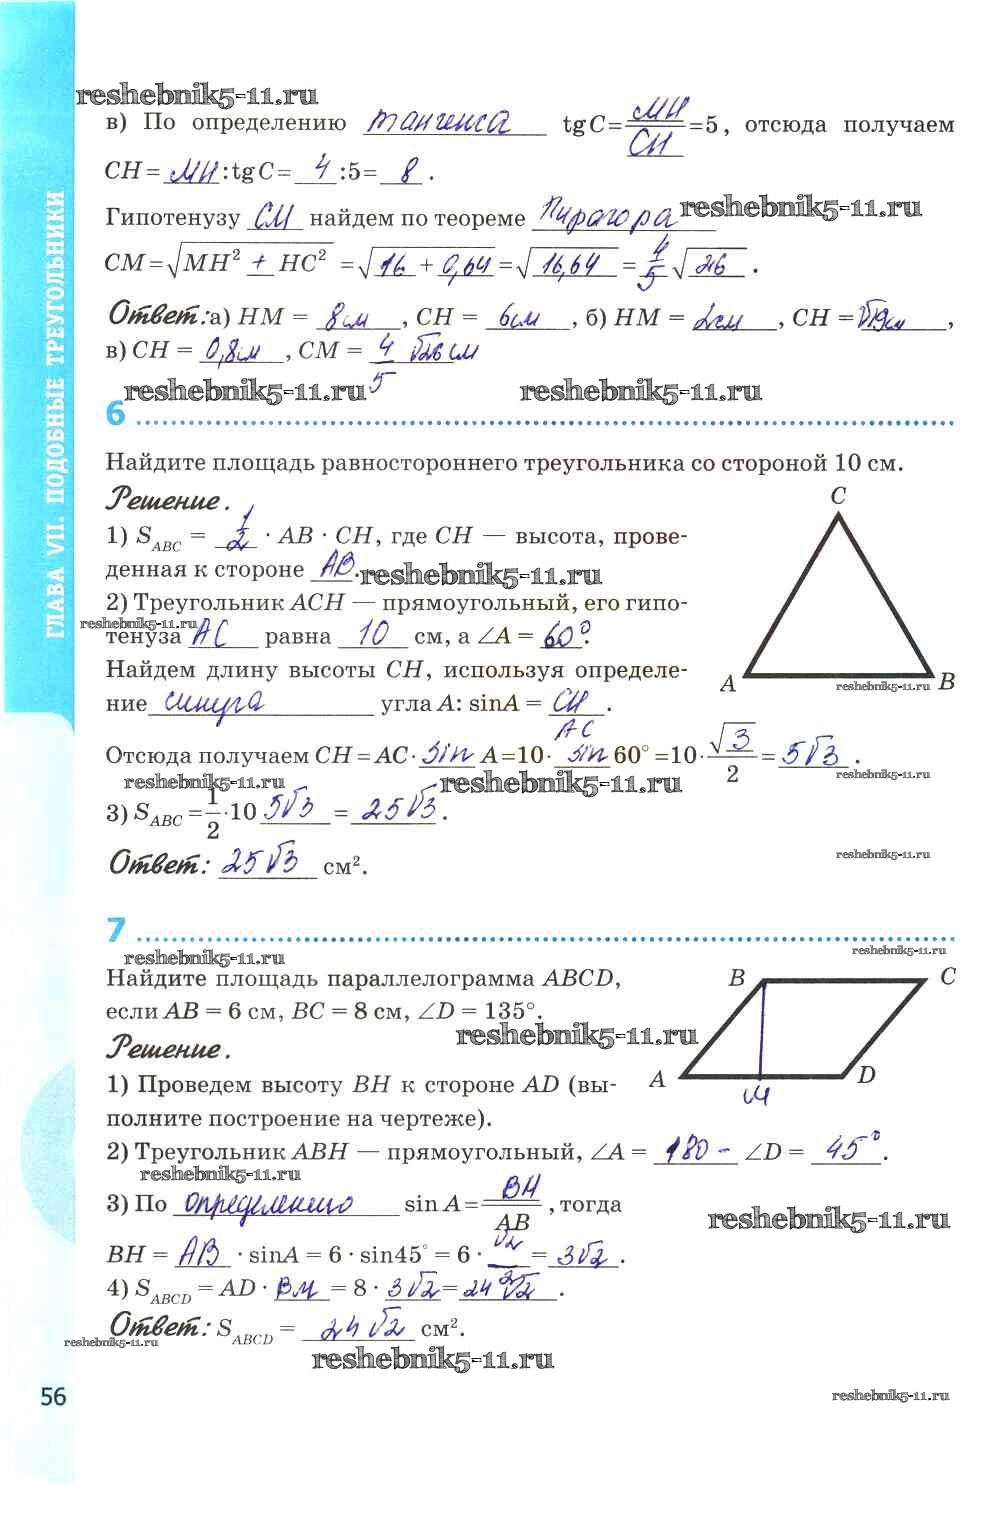 reshebnik5-11.ru
в) По определению тангенса tg C = МН/СН = 5, отсюда получаем
CH = МН : tg C = 4 : 5 = 8 .
Гипотенузу СМ найдем по теореме Пифагора reshebnik5-11.ru
CM = √MH² + HC² = √16 + 0,64 = √16,64 = 4/5 √26 .
Ответ: а) HM = 8см, CH = 6см, б) HM = 2см, CH = √19см,
в) CH = 0,8м, CM = 4/5 √26 см
reshebnik5-11.ru reshebnik5-11.ru
6
Найдите площадь равностороннего треугольника со стороной 10 см.
Решение.
1) S_ABC = 1/2 · AB · CH, где CH — высота, прове-
денная к стороне AB. reshebnik5-11.ru
2) Треугольник ACH — прямоугольный, его гипо-
reshebnik5-11.ru
тенуза AC равна 10 см, а ∠A = 60°.
Найдем длину высоты CH, используя определе-
ние синуса угла A: sinA = CH/AC.
C
A
B
reshebnik5-11.ru
Отсюда получаем CH = AC · sin A = 10 · sin 60° = 10 · √3/2 = 5√3 .
reshebnik5-11.ru reshebnik5-11.ru reshebnik5-11.ru
3) S_ABC = 1/2 · 10 5√3 = 25√3 .
Ответ: 25√3 см².
reshebnik5-11.ru
7
reshebnik5-11.ru reshebnik5-11.ru
Найдите площадь параллелограмма ABCD,
если AB = 6 см, BC = 8 см, ∠D = 135°.
reshebnik5-11.ru
Решение.
1) Проведем высоту BH к стороне AD (вы-
полните построение на чертеже).
B
C
A
D
М
2) Треугольник ABH — прямоугольный, ∠A = 180 - ∠D = 45°.
reshebnik5-11.ru
3) По определению sin A = BH/AB, тогда
reshebnik5-11.ru
BH = AB · sinA = 6 · sin45° = 6 · √2/2 = 3√2 .
4) S_ABCD = AD · ВМ = 8 · 3√2 = 24√2 .
Ответ: S_ABCD = 24√2 см².
reshebnik5-11.ru
reshebnik5-11.ru
56
reshebnik5-11.ru
ГЛАВА VII. ПОДОБНЫЕ ТРЕУГОЛЬНИКИ